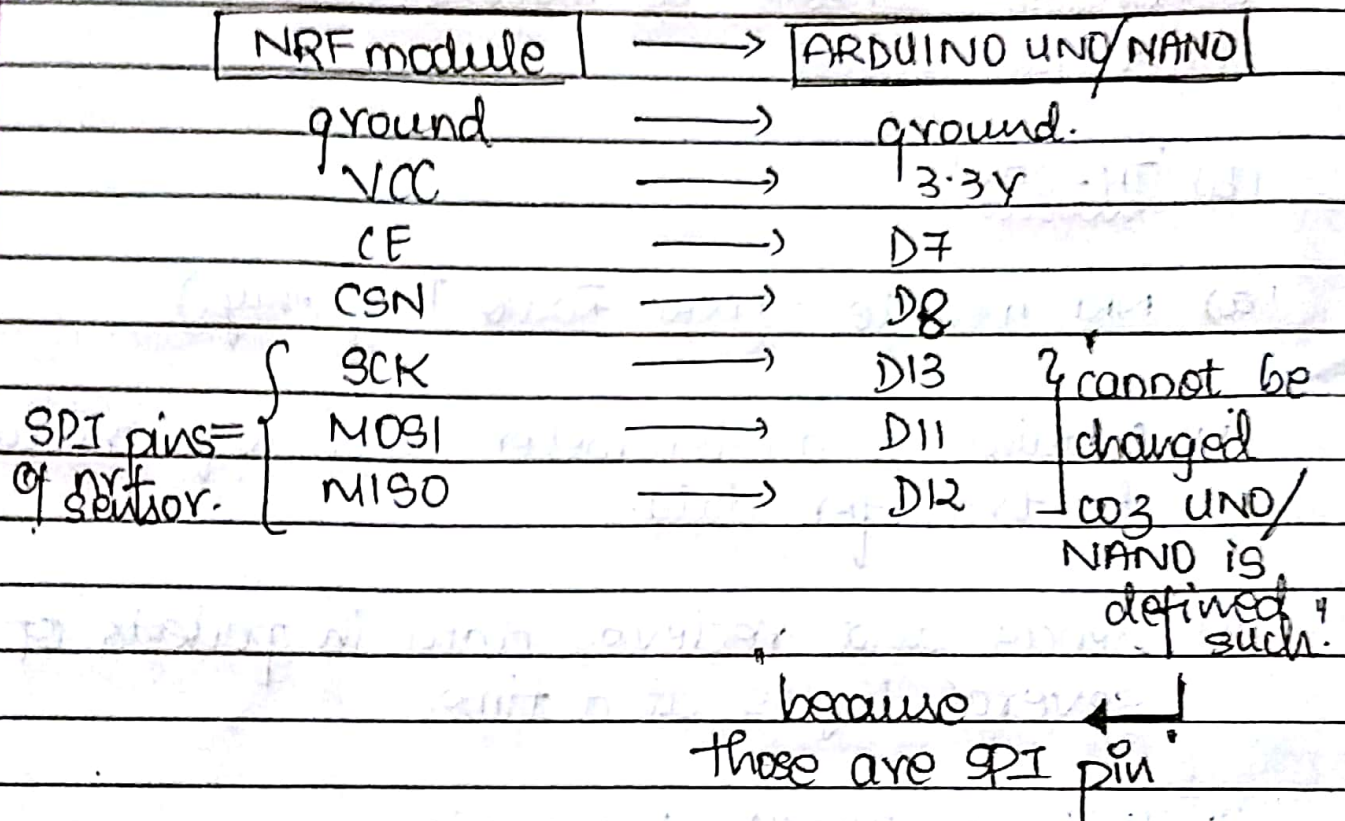 NRF module → ARDUINO UNO/NANO
ground → ground.
VCC → 3.3V
CE → D7
CSN → D8
SCK → D13
MOSI → D11
MISO → D12
SPI pins=
of nrf
sensor.
cannot be
changed
coz UNO/
NANO is
defined
such.
because
those are SPI pin